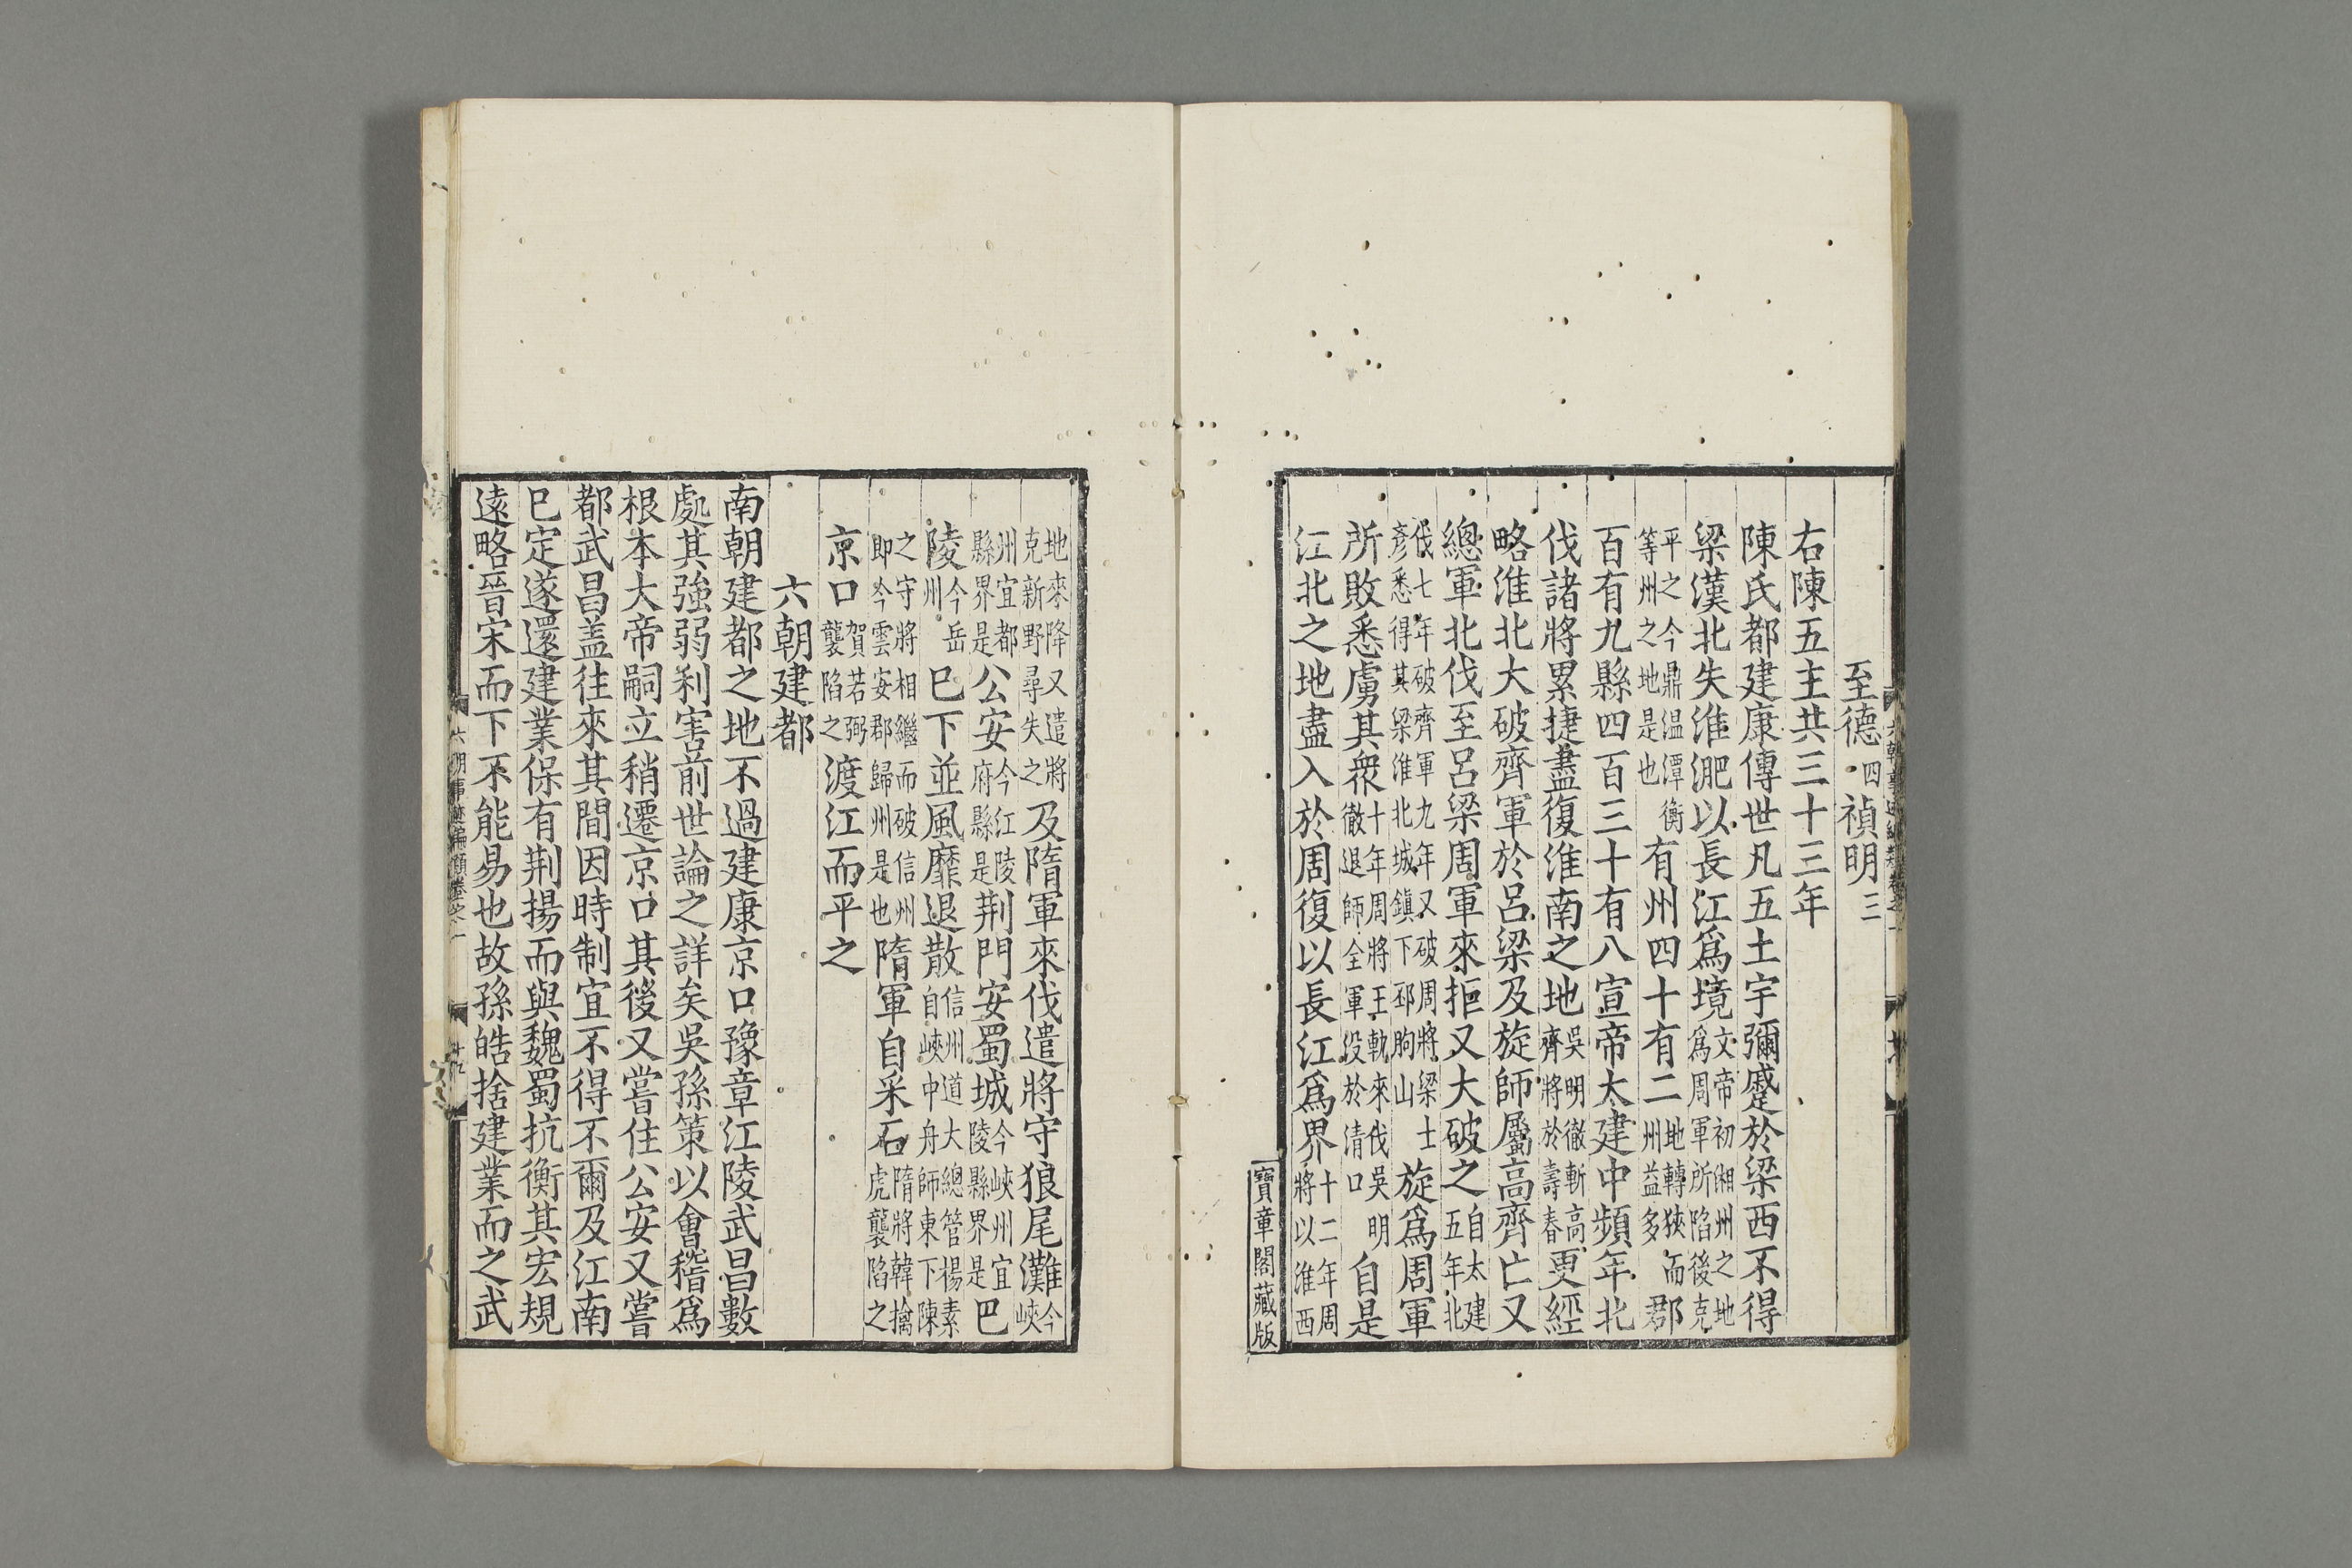 至德四禎明三
右陳五主共三十三年
陳氏都建康傳世凡五土宇彌蹙於梁西不得
梁漢北失淮淝以長江爲境文帝初湘州之地爲周軍所陷後克
平之今鼎温潭衡等州之地是也有州四十有二地轉狹而州益多郡
百有九縣四百三十有八宣帝太建中頻年北
伐諸將累捷盡復淮南之地吳明徹斬高齊將於壽春更經
略淮北大破齊軍於呂梁及旋師屬高齊亡又
總軍北伐至呂梁周軍來拒又大破之自太建五年北
伐七年破齊軍九年又破周將梁士彥悉得其梁淮北城鎮下邳朐山旋爲周軍
所敗悉虜其衆十年周將王軌來伐吳明徹退師全軍没於清口自是
江北之地盡入於周復以長江爲界十二年周將以淮西
寶章閣藏版
地來降又遣將克新野尋失之及隋軍來伐遣將守狼尾灘今峽
州宜都縣界是公安今江陵府縣是荆門安蜀城今峽州宜陵縣界是巴
陵今岳州巳下並風靡退散信州道大總管楊素自峽中舟師東下陳
之守將相繼而破信州即今雲安郡歸州是也隋軍自采石隋將韓擒虎襲陷之
京口賀若弼襲陷之渡江而平之
六朝建都
南朝建都之地不過建康京口豫章江陵武昌數
處其強弱利害前世論之詳矣吳孫策以會稽爲
根本大帝嗣立稍遷京口其後又嘗住公安又嘗
都武昌盖往來其間因時制宜不得不爾及江南
巳定遂還建業保有荆揚而與魏蜀抗衡其宏規
遠略晉宋而下不能易也故孫皓捨建業而之武